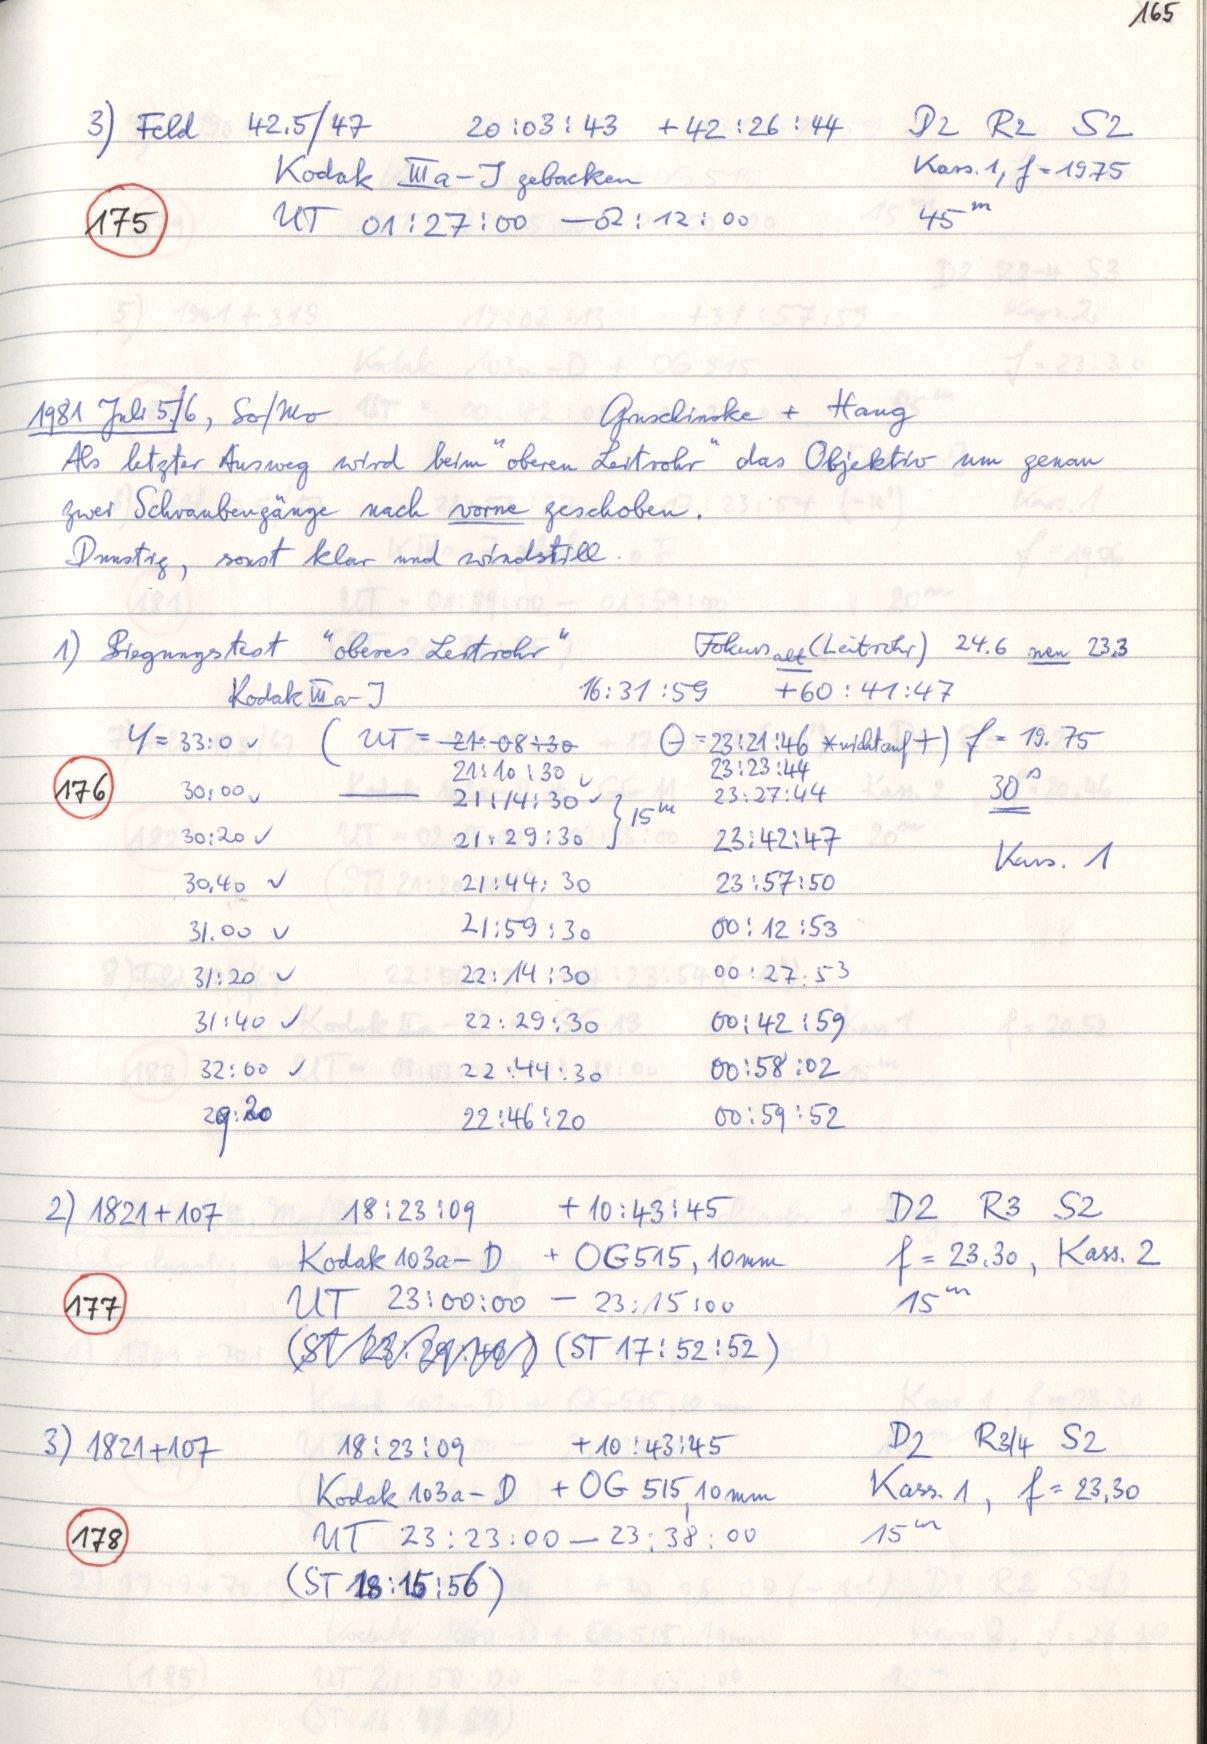 165
3) Feld 42.5/47 20:03:43 +42:26:44 D2 R2 S2
Kodak IIIa-J gebacken Kass. 1, f = 19.75
175 UT 01:27:00 – 02:12:00 45m
1981 Juli 5./6, So/Mo Gruschinske + Haug
Als letzter Ausweg wird beim "oberen Leitrohr" das Objektiv um genau
zwei Schraubengänge nach vorne geschoben.
Dunstig, sonst klar und windstill.
1) Biegungstest "oberes Leitrohr" Fokus alt (Leitrohr) 24.6 neu 23.3
Kodak IIIa-J 16:31:59 +60:41:47
Y = 33:0 ✓ ( UT = 21:08:30 Θ = 23:21:46 *nicht auf +) f = 19.75
21:10:30 ✓ 23:23:44
176 30:00 ✓ 21:14:30 ✓ } 15m 23:27:44 30s
30:20 ✓ 21:29:30 23:42:47
Kass. 1
30.40 ✓ 21:44:30 23:57:50
31.00 ✓ 21:59:30 00:12:53
31:20 ✓ 22:14:30 00:27:53
31:40 ✓ 22:29:30 00:42:59
32:00 ✓ 22:44:30 00:58:02
29:20 22:46:20 00:59:52
2) 1821+107 18:23:09 +10:43:45 D2 R3 S2
Kodak 103a-D + OG515, 10mm f = 23.30, Kass. 2
177 UT 23:00:00 – 23:15:00 15m
(ST 17:52:52)
3) 1821+107 18:23:09 +10:43:45 D2 R3/4 S2
Kodak 103a-D + OG 515, 10mm Kass. 1, f = 23,30
178 UT 23:23:00 – 23:38:00 15m
(ST 18:15:56)